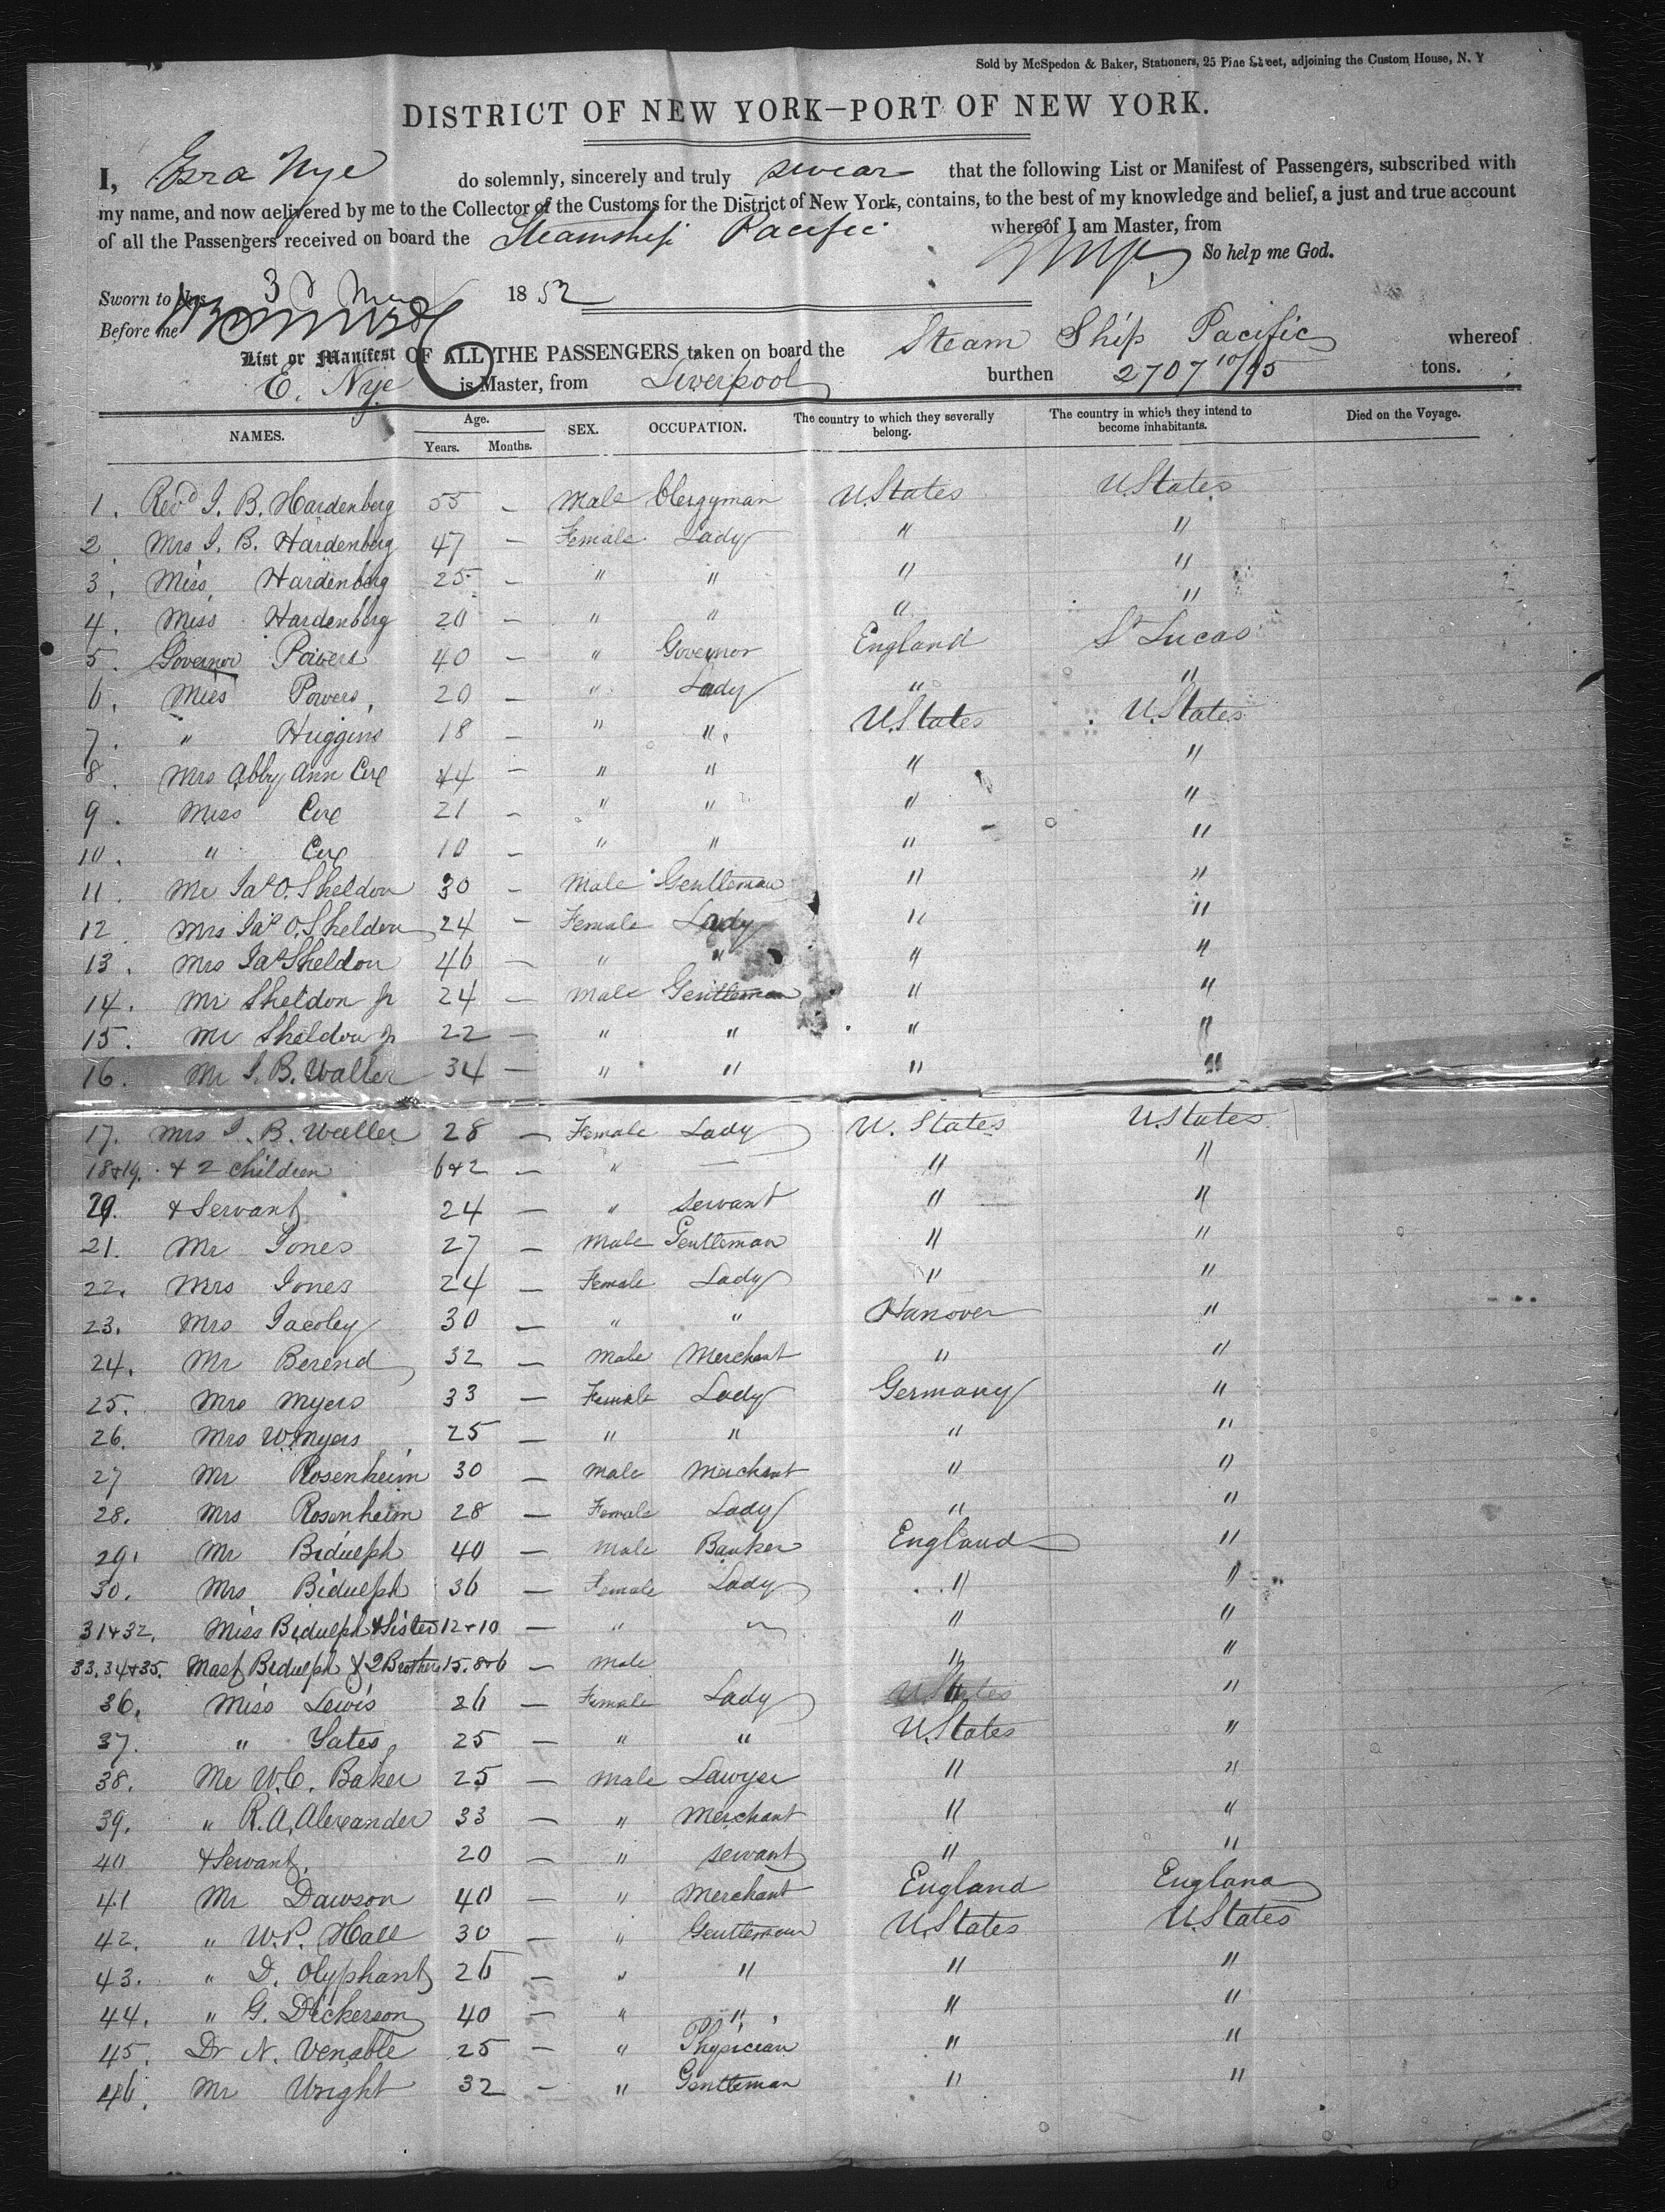 Sold by McSpedon & Baker, Stationers, 25 Pine Street, adjoining the Custom House, N. Y
DISTRICT OF NEW YORK—PORT OF NEW YORK.
I, Ezra Nye do solemnly, sincerely and truly swear that the following List or Manifest of Passengers, subscribed with
my name, and now delivered by me to the Collector of the Customs for the District of New York, contains, to the best of my knowledge and belief, a just and true account
of all the Passengers received on board the Steamship Pacific whereof I am Master, from
So help me God.
Sworn to this 3d 1852
Before me
List or Manifest OF ALL THE PASSENGERS taken on board the Steam Ship Pacific whereof
E. Nye is Master, from Liverpool burthen 2707 10/95 tons.
NAMES. Age. Years. Months. SEX. OCCUPATION. The country to which they severally belong. The country in which they intend to become inhabitants. Died on the Voyage.
1. Revd J. B. Hardenberg 55 - Male Clergyman U.States U.States
2. Mrs J. B. Hardenberg 47 - Female Lady " "
3. Miss Hardenberg 25 - " " " "
4. Miss Hardenberg 20 - " " " "
5. Governor Powers 40 - " Governor England St Lucas
6. Miss Powers, 20 - " Lady " "
7. " Huggins 18 - " " U.States U.States
8. Mrs Abby Ann Coxe 44 - " " " "
9. Miss Coxe 21 - " " " "
10. " Coxe 10 - " " " "
11. Mr Jas O. Sheldon 30 - Male Gentleman " "
12 Mrs Jas O. Sheldon 24 - Female Lady " "
13. Mrs Jas Sheldon 46 - " " " "
14. Mr Sheldon Jr 24 - Male Gentleman " "
15. Mr Sheldon Jr 22 - " " " "
16. Mr J. B. Waller 34 - " " " "
17. Mrs J. B. Waller 28 - Female Lady U. States U.States
18&19. & 2 children 6&2 - " — " "
20. & Servant 24 - " Servant " "
21. Mr Jones 27 - Male Gentleman " "
22. Mrs Jones 24 - Female Lady " "
23. Mrs Jacoby 30 - " " Hanover "
24. Mr Berend 32 - Male Merchant " "
25. Mrs Myers 33 - Female Lady Germany "
26. Mrs W. Myers 25 - " " " "
27 Mr Rosenheim 30 - Male Merchant " "
28. Mrs Rosenheim 28 - Female Lady " "
29. Mr Bidulph 40 - Male Banker England "
30. Mrs Bidulph 36 - Female Lady " "
31&32. Miss Bidulph & Sister 12&10 - " " " "
33,34&35. Mast Bidulph & 2 Brothers 15.8&6 - Male " "
36. Miss Lewis 26 - Female Lady " "
37. " Yates 25 - " " U.States "
38. Mr W.C. Baker 25 - Male Lawyer " "
39. " R.A. Alexander 33 - " Merchant " "
40 & Servant. 20 - " Servant " "
41 Mr Dawson 40 - " Merchant England England
42. " W.P. Hall 30 - " Gentleman U.States U.States
43. " D. Olyphant 26 - " " " "
44. " G. Dickerson 40 - " " " "
45. Dr N. Venable 25 - " Physician " "
46. Mr Wright 32 - " Gentleman " "